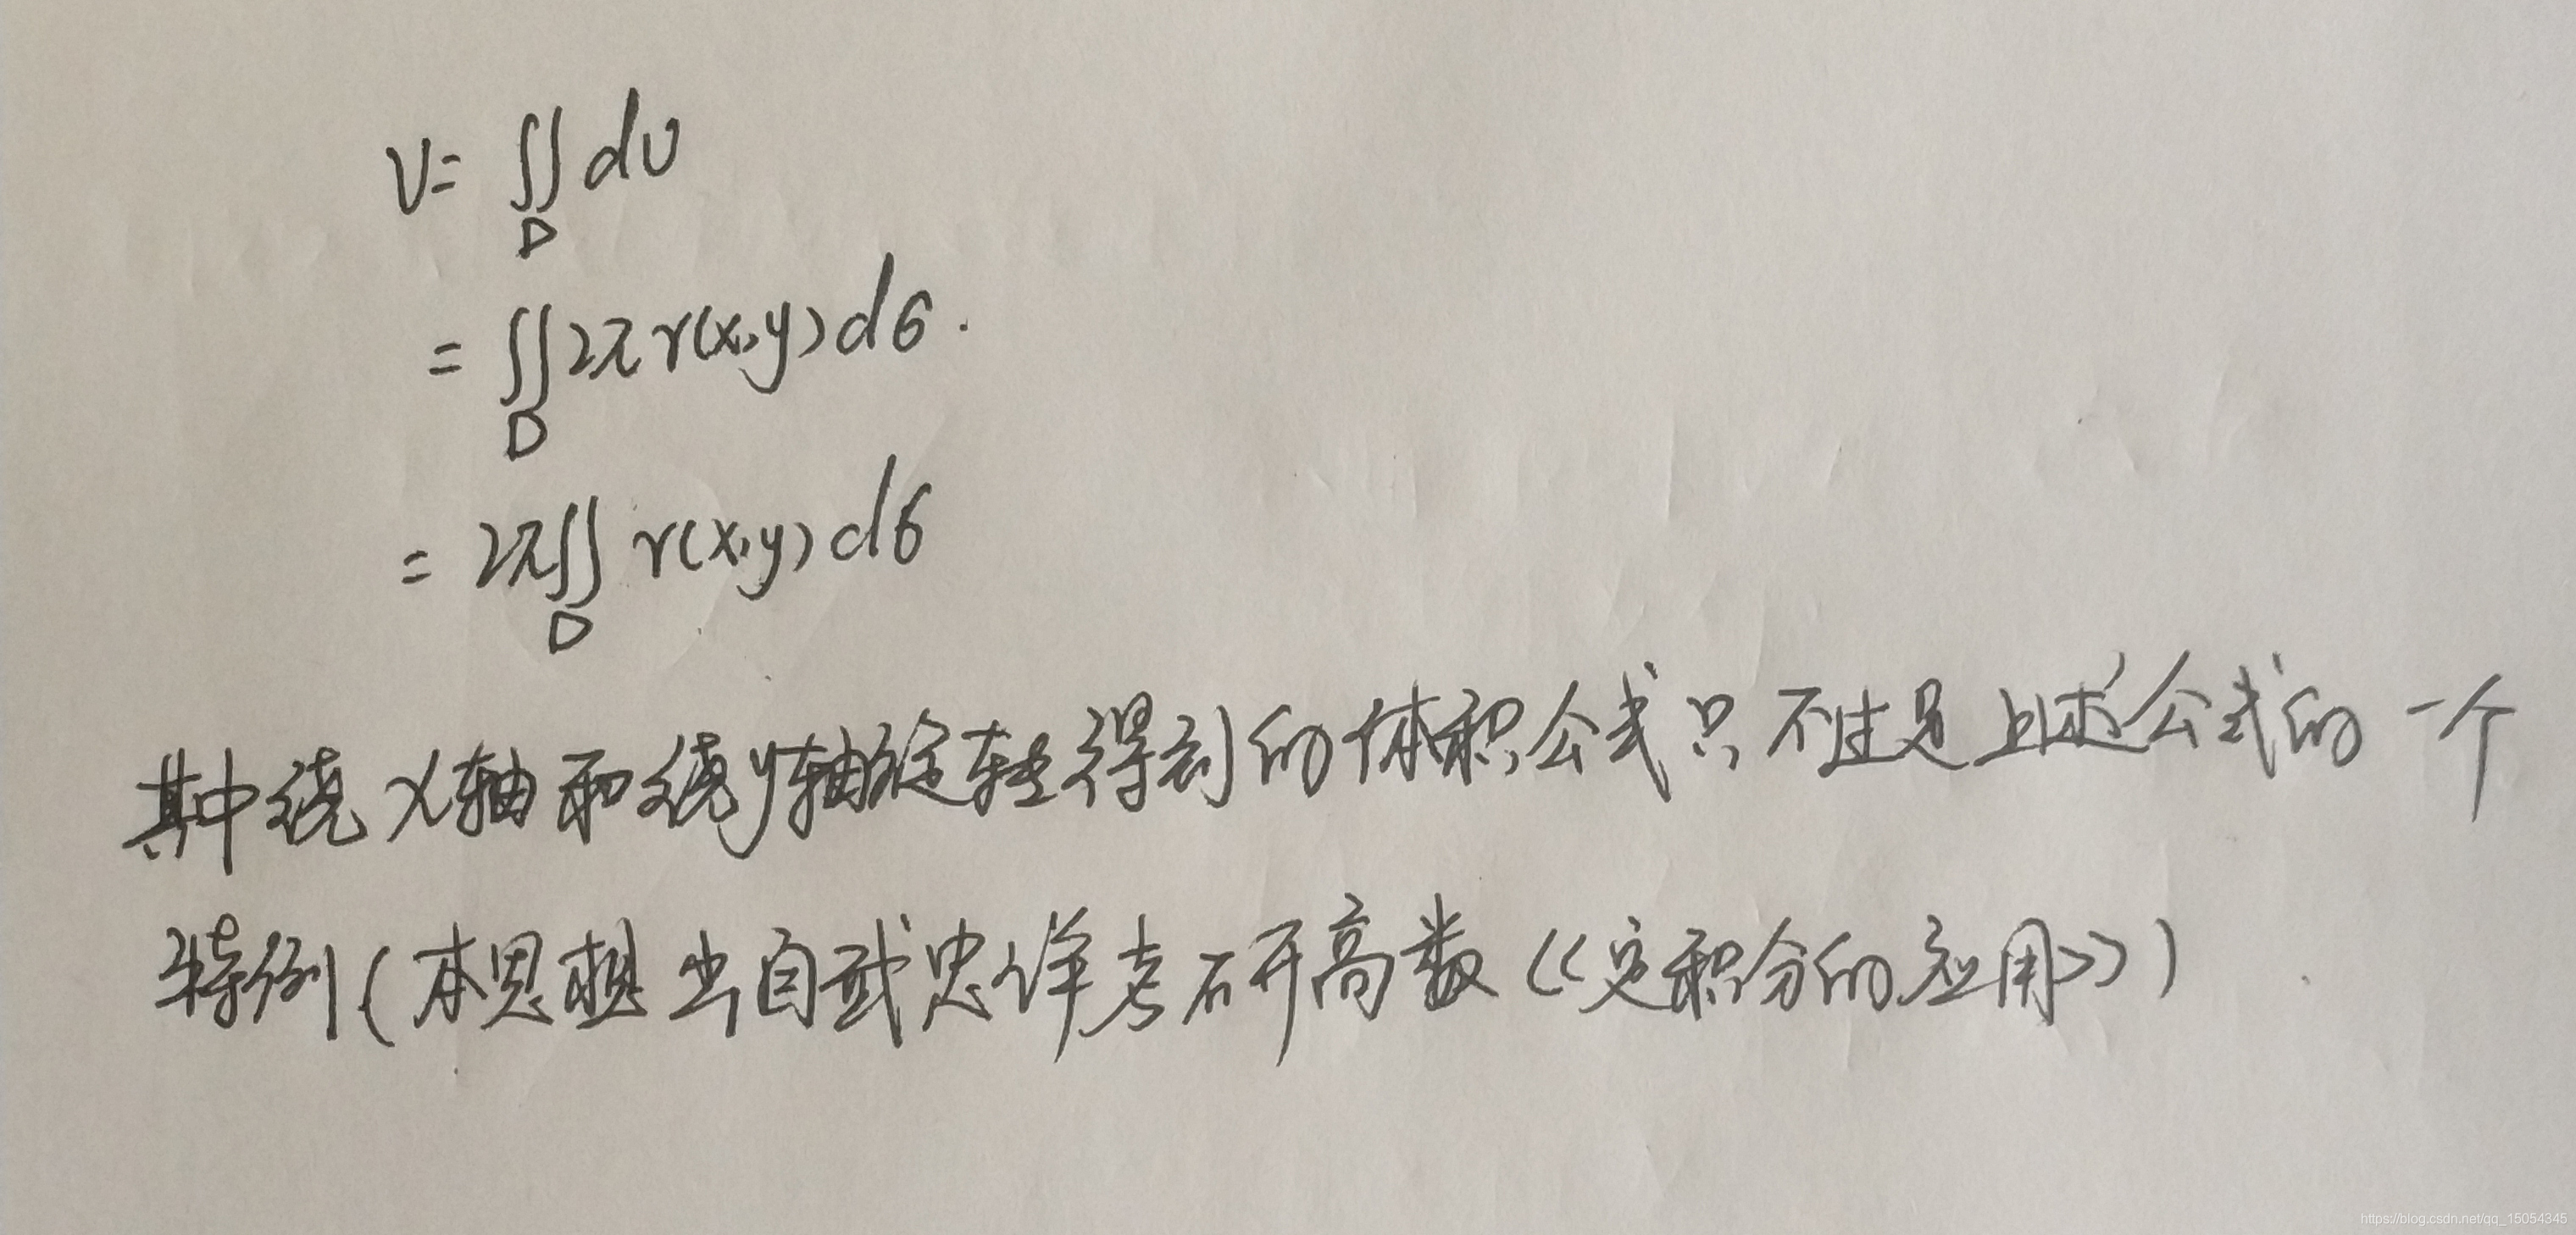 V= ∬ dv
D
= ∬ 2π r(x,y) dσ.
D
= 2π ∬ r(x,y) dσ
D
其中绕x轴和绕y轴旋转得到的体积公式只不过是上述公式的一个
特例(本思想出自武忠祥考研高数《定积分的应用》)
https://blog.csdn.net/qq_15054345